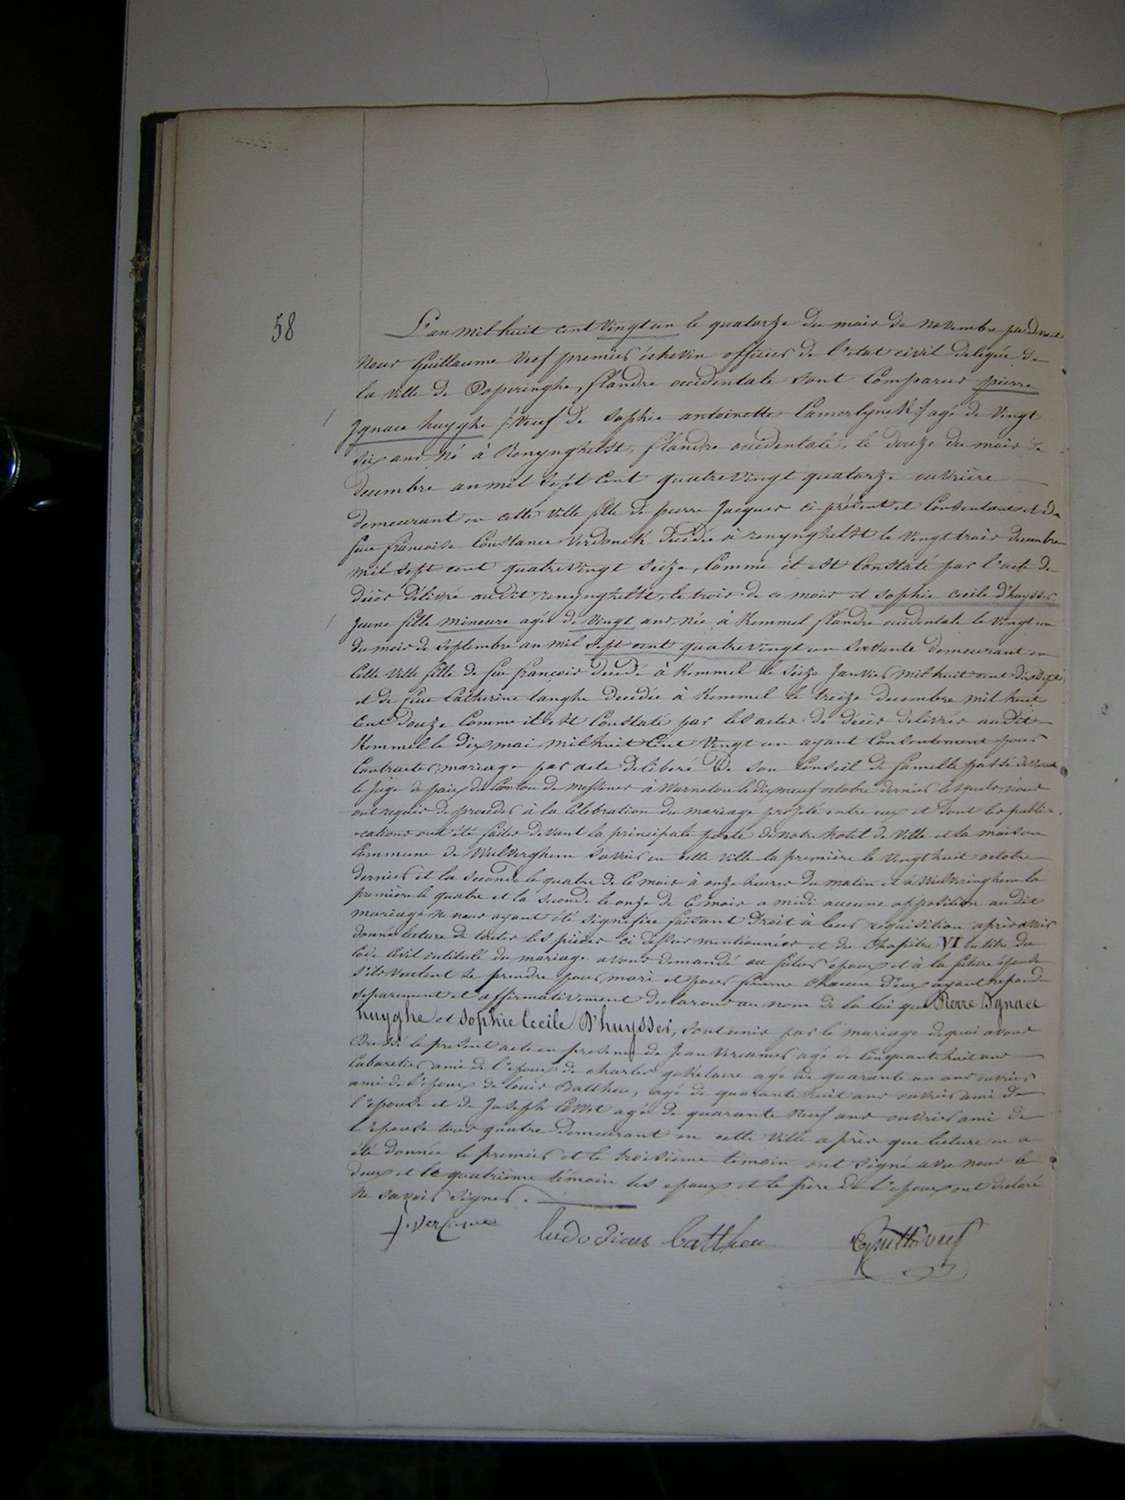 58
L'an mil huit cent vingt un le quatorze du mois de novembre par devant
Nous Guillaume Veef premier échevin officier de l'état civil delégué de
la ville de Poperinghe, flandre occidentale sont Comparus pierre
Ignace huyghe /: Veuf de Sophie antoinette Camerlynck :/ agé de Vingt
six ans Né à Renynghelst, flandre occidentale, le douze du mois de
decembre an mil sept cent quatre vingt quatorze ouvrière
demeurant en cette Ville fils de pierre Jacques ci présent et Consentant et de
feue francoise Constance Verdonck décédée à renynghelst le Vingt trois decembre
mil sept cent quatre vingt seize, Comme il est Constaté par l'acte de
décès délivré audit renynghelst, le trois de ce mois et Sophie cecile d'huysser
jeune fille mineure agée de Vingt ans, Née à Kemmel flandre occidentale le Vingt un
du mois de Septembre an mil sept cent quatre vingt un Servante demeurant en
Cette Ville fille de feu françois décédé à Kemmel le Seize Janvier mil huit cent dix sept
et de feue Catherine langhe Decedée à Kemmel le treize decembre mil huit
Cent douze Comme il est Constaté par les actes de décès delivrés audit
Kemmel le dix mai mil huit Cent Vingt un ayant Consentement pour
Contracter mariage par acte deliberé de son Conseil de famille passé devant
le juge de paix du Canton de messines à Warneton le dix neuf octobre dernier lesquels nous
ont requis de procéder à la Celebration du mariage projeté entre eux et dont les publi-
-cations ont été faites devant la principale porte de notre hotel de Ville et la maison
Commune de Wulverghem Savoir en cette ville la première le Vingt huit octobre
dernier et la Seconde le quatre de ce mois à onze heures du matin et à Wulveringhem la
première le quatre et la Seconde le onze de ce mois a midi aucune opposition au dit
mariage ne nous ayant été signifiée faisant Droit à leur requisition après avoir
donné lecture de toutes les pièces ci dessus mentionnées et du Chapitre VI du titre du
Code Civil intitulé du mariage avons demandé au futur époux et à la future épouse
s'ils veulent se prendre pour mari et pour femme chacun d'eux ayant repondu
séparement et affirmativement declarons au nom de la loi que Pierre Ignace
huyghe et Sophie Cecile D'huysser, Sont unis par le mariage de quoi avons
Dressé le présent acte en presence de Jean Vercames agé de Cinquante huit ans
Cabaretier ami de l'epoux de charles agé de quarante un ans ouvrier
ami de l'epoux de louis Battheu, agé de quarante huit ans ouvrier ami de
l'épouse et de Joseph agé de quarante Neuf ans ouvrier ami de
l'epouse tous quatre demeurant en cette Ville après que lecture en a
été donnée le premier et le troisième témoin ont signé avec nous le
deux et le quatrième témoin les epoux et le père de l'epoux ont declaré
Ne savoir signer.
J. Vercames ludovicus battheu Guille Veef